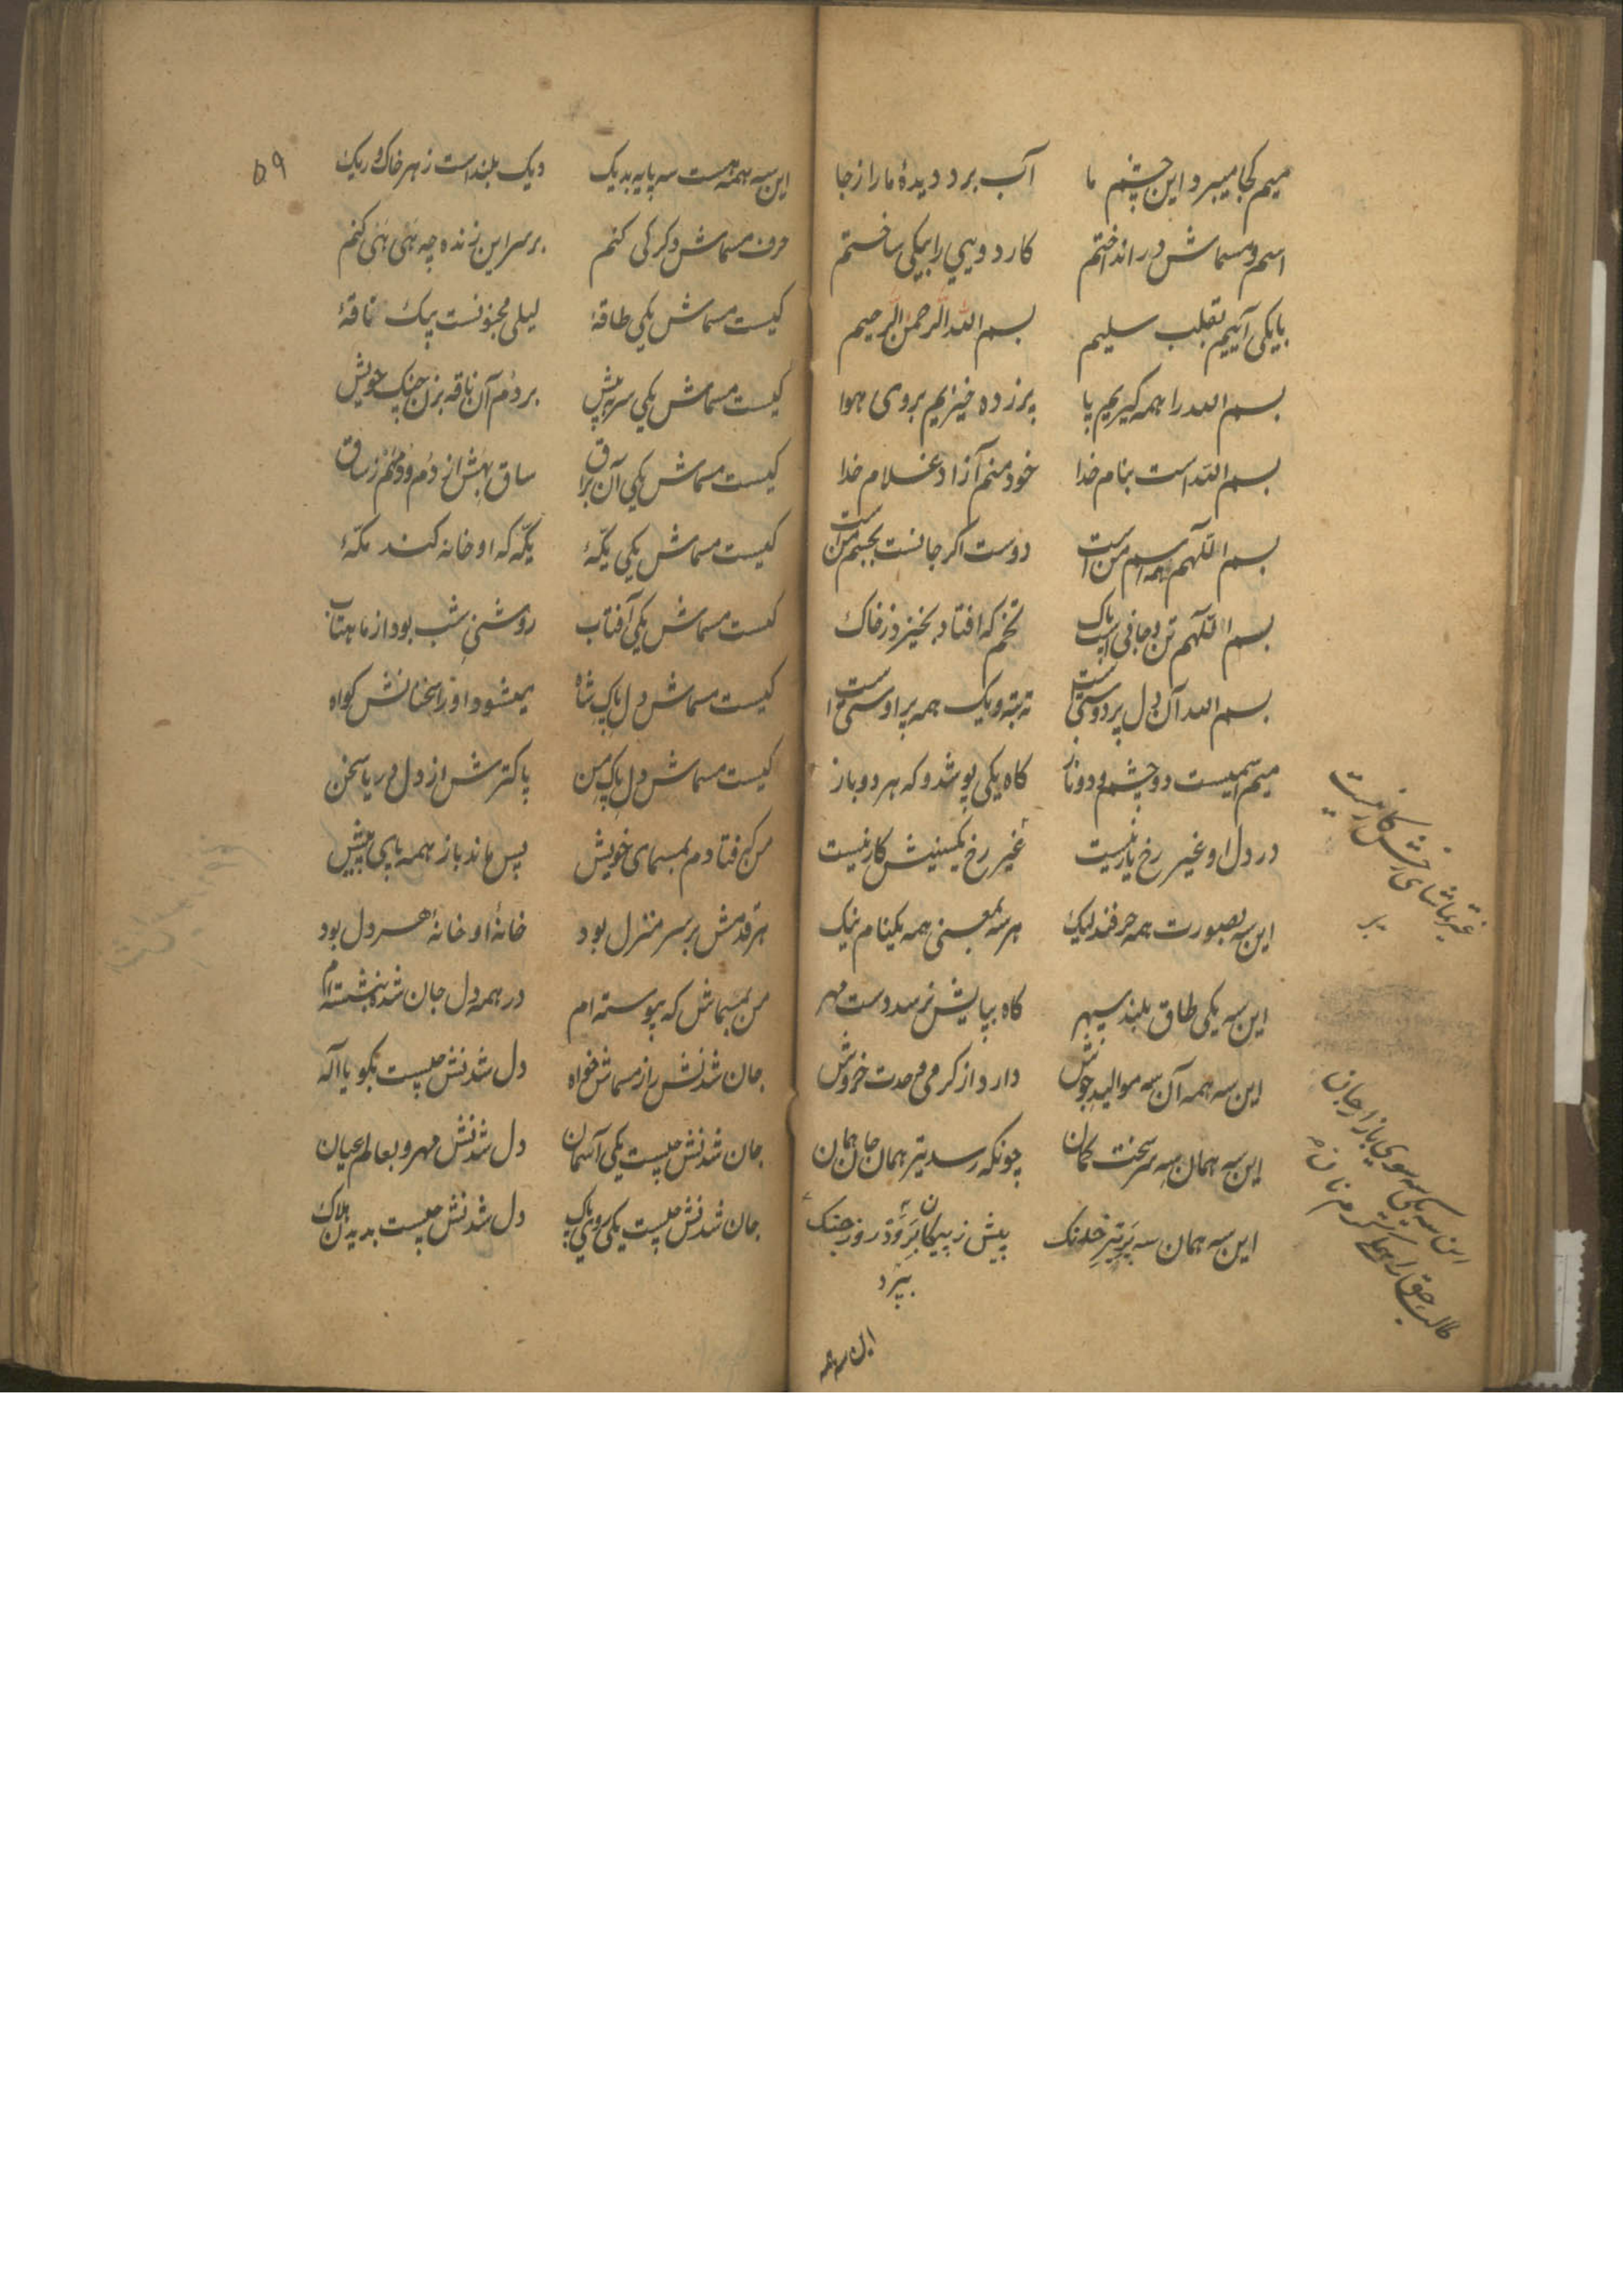 میم کجا میبرد این چشم ما آب برد دیدهٔ ما را ز جا
اسم و مسماش در انداختم کار دویی را بیکی ساختم
با یکی آییم بقلب سلیم بسم الله الرحمن الرحیم
بسم الله را همه گیریم پا پر زده خیزیم بروی هوا
بسم الله است بنام خدا خود منم آزاد غلام خدا
بسم اللهم همه اسم من است دوست اگر جانست بجسم من است
بسم اللهم تن و جانی پاک تخم که افتاد بخیزد ز خاک
بسم الله آن دل پر دوستی است همه پر اوستی است
میم سمیست دو چشم و دو ناز گاه یکی پوشد و گه هر دو باز
در دل او غیر رخ یار نیست غیر رخ کار نیست
این سه بصورت همه حرفند لیک هر سه بمعنی همه یکنام نیک
این سه یکی طاق بلند سپهر گاه بپایش نرسد دست مهر
این سه همه آن سه موالید جوش دارد از گرمی وحدت خروش
این سه همان سه سر سخت کمان چونکه رسد تیر همان جان همان
این سه همان سه پر تیر خدنگ پیش ز پیکان پرد روز جنگ
بپرد
این سه همه
غیر تماشای رخش کار نیست
این سه یکی سوی بازار جان
طالب حق را
۵۹
این سه همه هست سه پایه بدیگ دیگ بلند است ز هر خاک و ریگ
حرف مسماش دگر کی کنم بر سر این زنده چه هی هی کنم
کیست مسماش یکی طاقهٔ لیلی مجنونست یک ناقهٔ
کیست مسماش یکی سر بپیش بر دم آن ناقه بزن چنگ خویش
کیست مسماش یکی آن براق ساق بهش از دم و دم هم ز ساق
کیست مسماش یکی یکّهٔ یکّه که او خانه کند مکّهٔ
کیست مسماش یکی آفتاب روشنی شب بود از ماهتاب
کیست مسماش دل پاک شاه میشود او را سخنانش گواه
کیست مسماش دل پاک من پاکترش از دل دریا سخن
من که فتادم بمسمای خویش پس ماند باز همه پای پیش
هر قدمش بر سر منزل بود خانهٔ او خانهٔ هر دل بود
من بمسماش که پیوسته ام در همه دل جان شده بنشسته ام
جان شدنش راز مسماش خواه دل شدنش چیست بگو یا اله
جان شدنش چیست یکی آسمان دل شدنش مهر و بعالم عیان
جان شدنش چیست یکی روی پاک دل شدنش چیست بدیدن هلاک